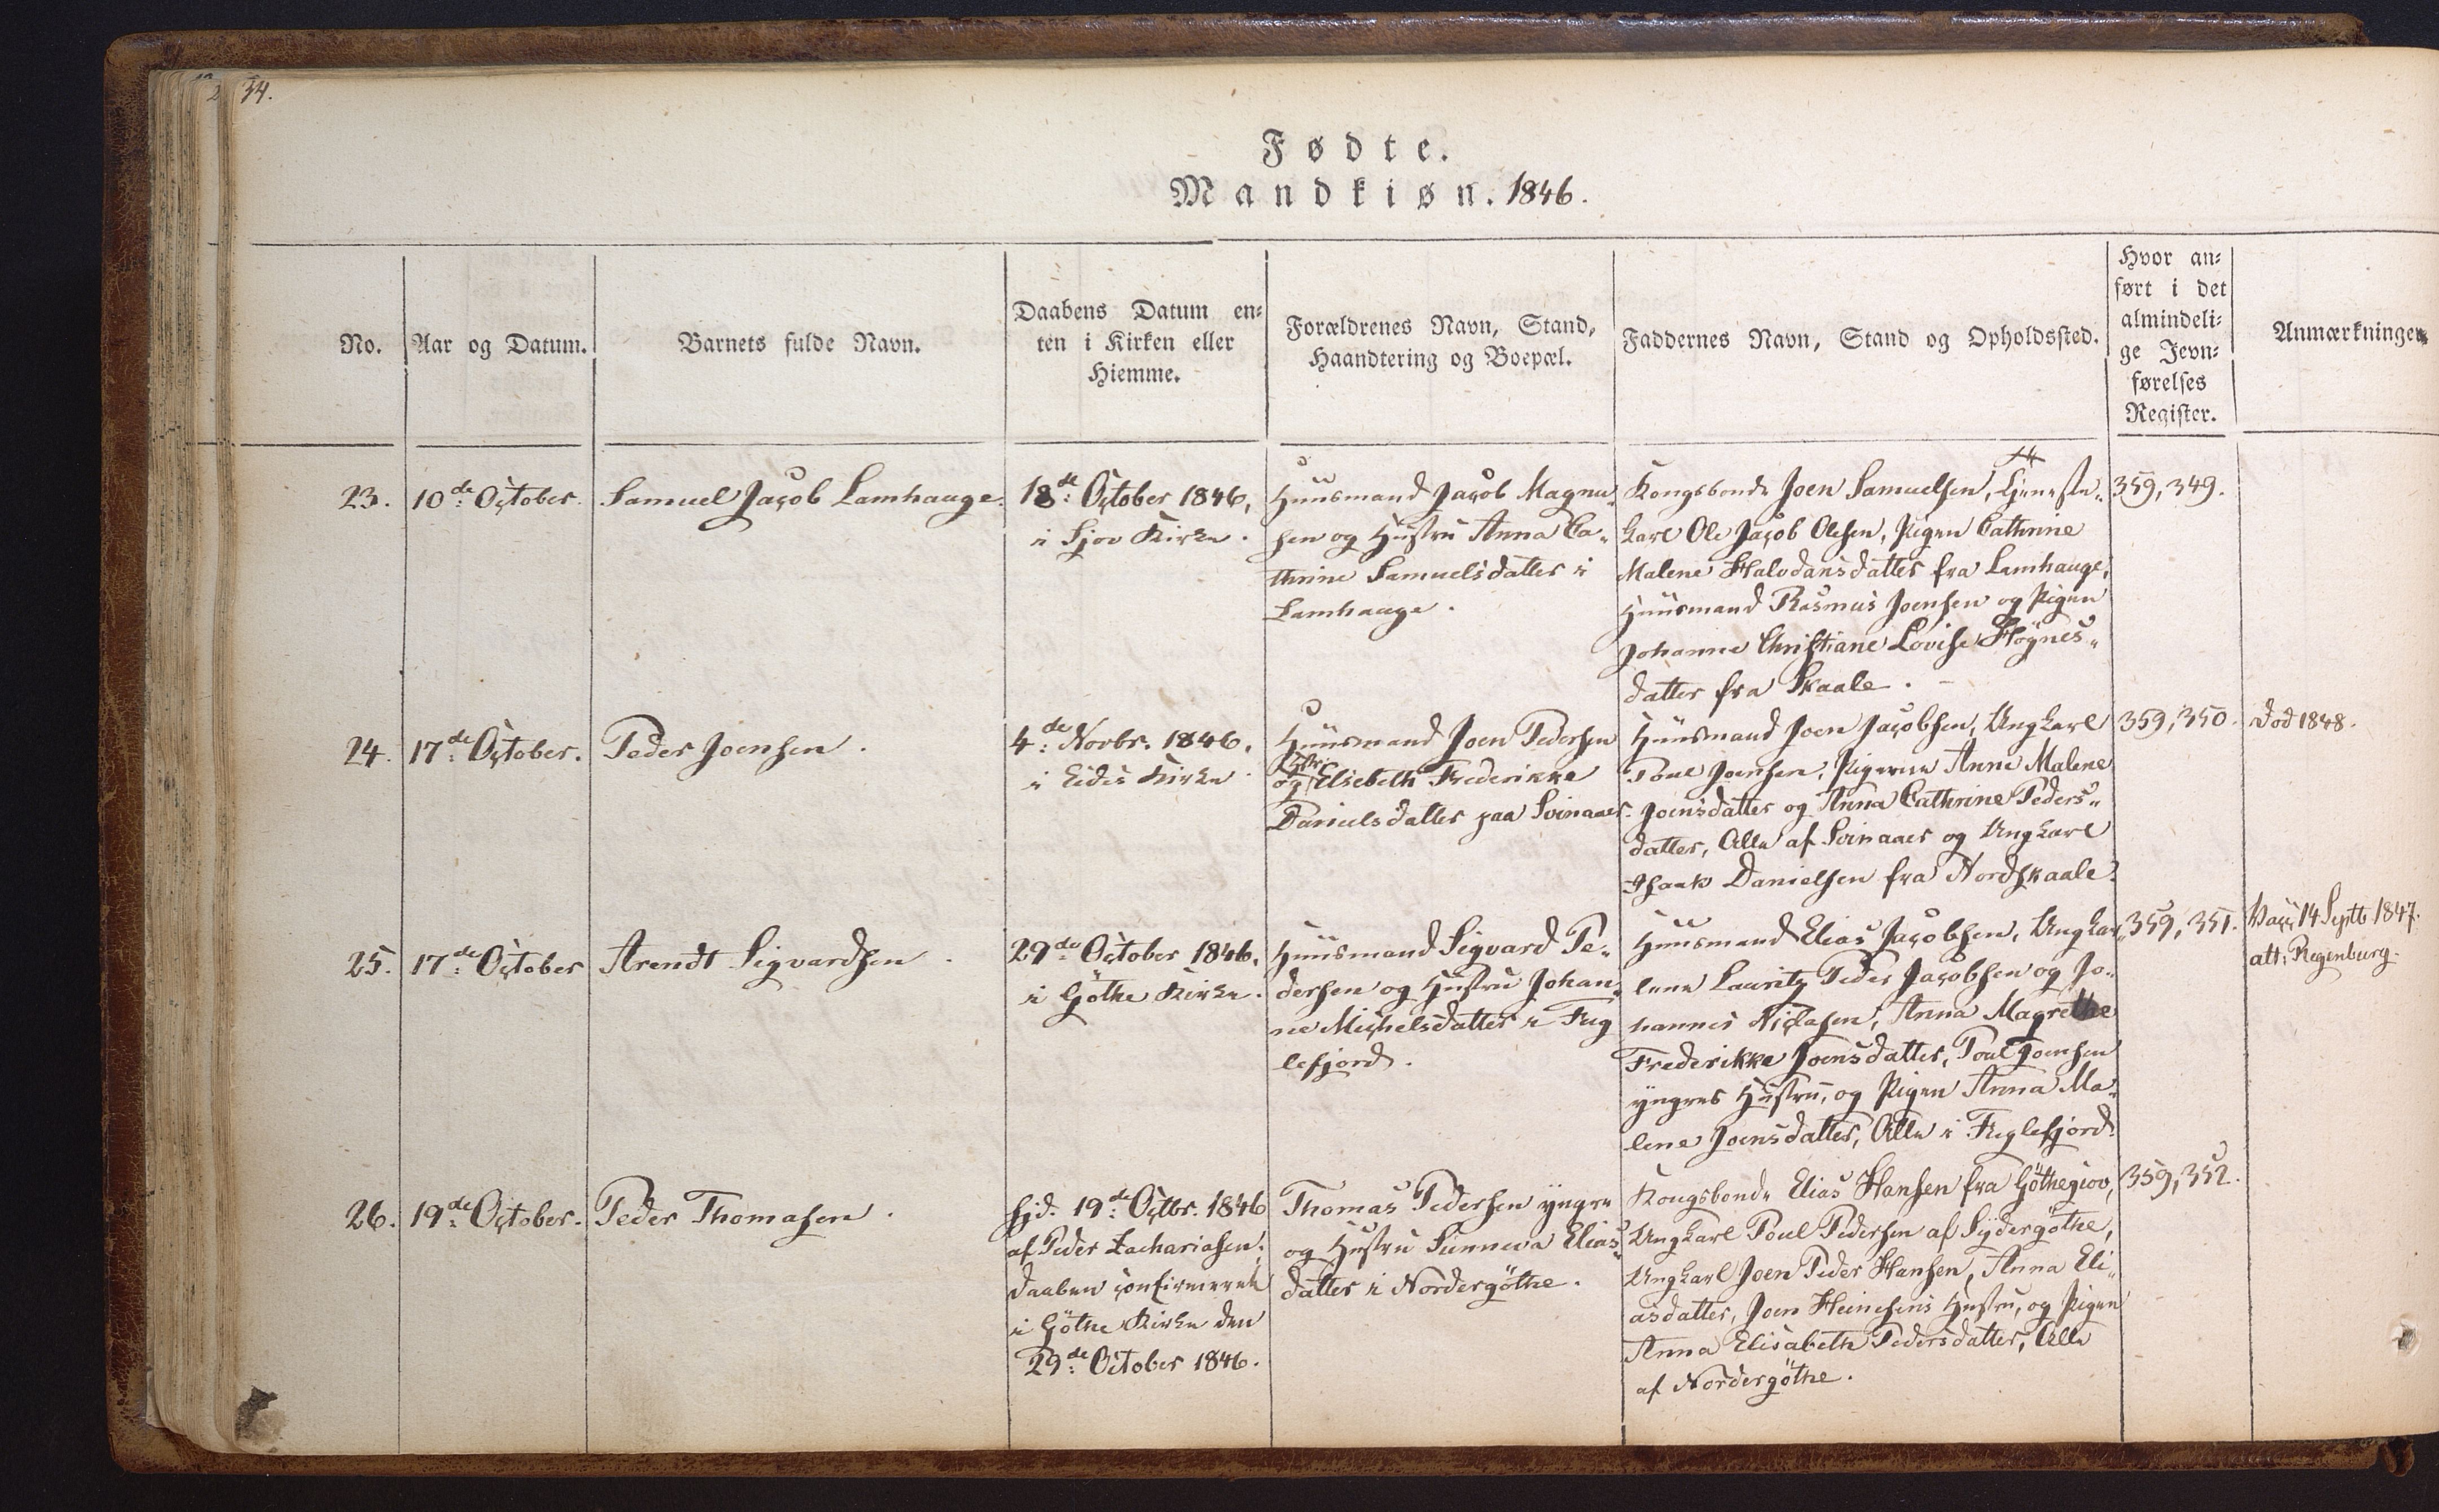 34.
Fødte.
Mandkiøn. 1846.
No.
Aar og Datum.
Barnets fulde Navn.
Daabens Datum en-
ten i Kirken eller
Hiemme.
Forældrenes Navn, Stand,
Haandtering og Boepæl.
Faddernes Navn, Stand og Opholdssted.
Hvor an-
ført i det
almindeli-
ge Jevn-
førelses
Register.
Anmærkninger
23.
10de October.
Samuel Jacob Lamhauge.
18de October 1846,
i Sjov Kirke.
Huusmand Jacob Magnu-
sen og Hustru Anna Ca-
thrine Samuelsdatter i
Lamhauge.
Kongsbonde Joen Samuelsen, Tjeneste-
karl Ole Jacob Olesen, Pigen Cathrine
Malene Halvdansdatter fra Lamhauge,
Huusmand Rasmus Joensen og Pigen
Johanne Christiane Lovise Høgnes-
datter fra Skaale.
359, 349.
24.
17de October.
Peder Joensen.
4de Novbr. 1846,
i Eides Kirke.
Huusmand Joen Pedersen
og Hstr. Elsebeth Frederikke
Danielsdatter paa Svinaaer.
Huusmand Joen Jacobsen, Ungkarl
Poul Joensen, Pigerne Anne Malene
Joensdatter og Anna Cathrine Peders-
datter, Alle af Svinaaer og Ungkarl
Isaak Danielsen fra Nordskaale.
359, 350.
Død 1848.
25.
17de October
Arendt Sigvardsen.
29de October 1846,
i Göthe Kirke.
Huusmand Sigvard Pe-
dersen og Hustru Johan-
ne Michelsdatter i Fug
lefjord.
Huusmand Elias Jacobsen, Ungkar-
lene Lauritz Peder Jacobsen og Jo-
hannes Niclasen, Anna Magrethe
Frederikke Joensdatter, Poul Joensen
yngres Hustru, og Pigen Anna Ma-
lene Joensdatter, Alle i Fuglefjord.
359, 351.
Vacc. 14 Septb 1847.
att. Regenburg.
26.
19de October.
Peder Thomasen.
Hjd. 19de Octbr. 1846
af Peder Zachariasen;
Daaben confirmeret
i Göthe Kirke den
29de October 1846.
Thomas Pedersen yngre
og Hustru Sunneva Elias-
datter i Nordergöthe.
Kongsbonde Elias Hansen fra Göthegiov,
Ungkarl Poul Pedersen af Sydergöthe,
Ungkarl Joen Peder Hansen, Anna Eli-
asdatter, Joen Heinesens Hustru, og Pigen
Anna Elisabeth Pedersdatter, Alle
af Nordergöthe.
359, 352.